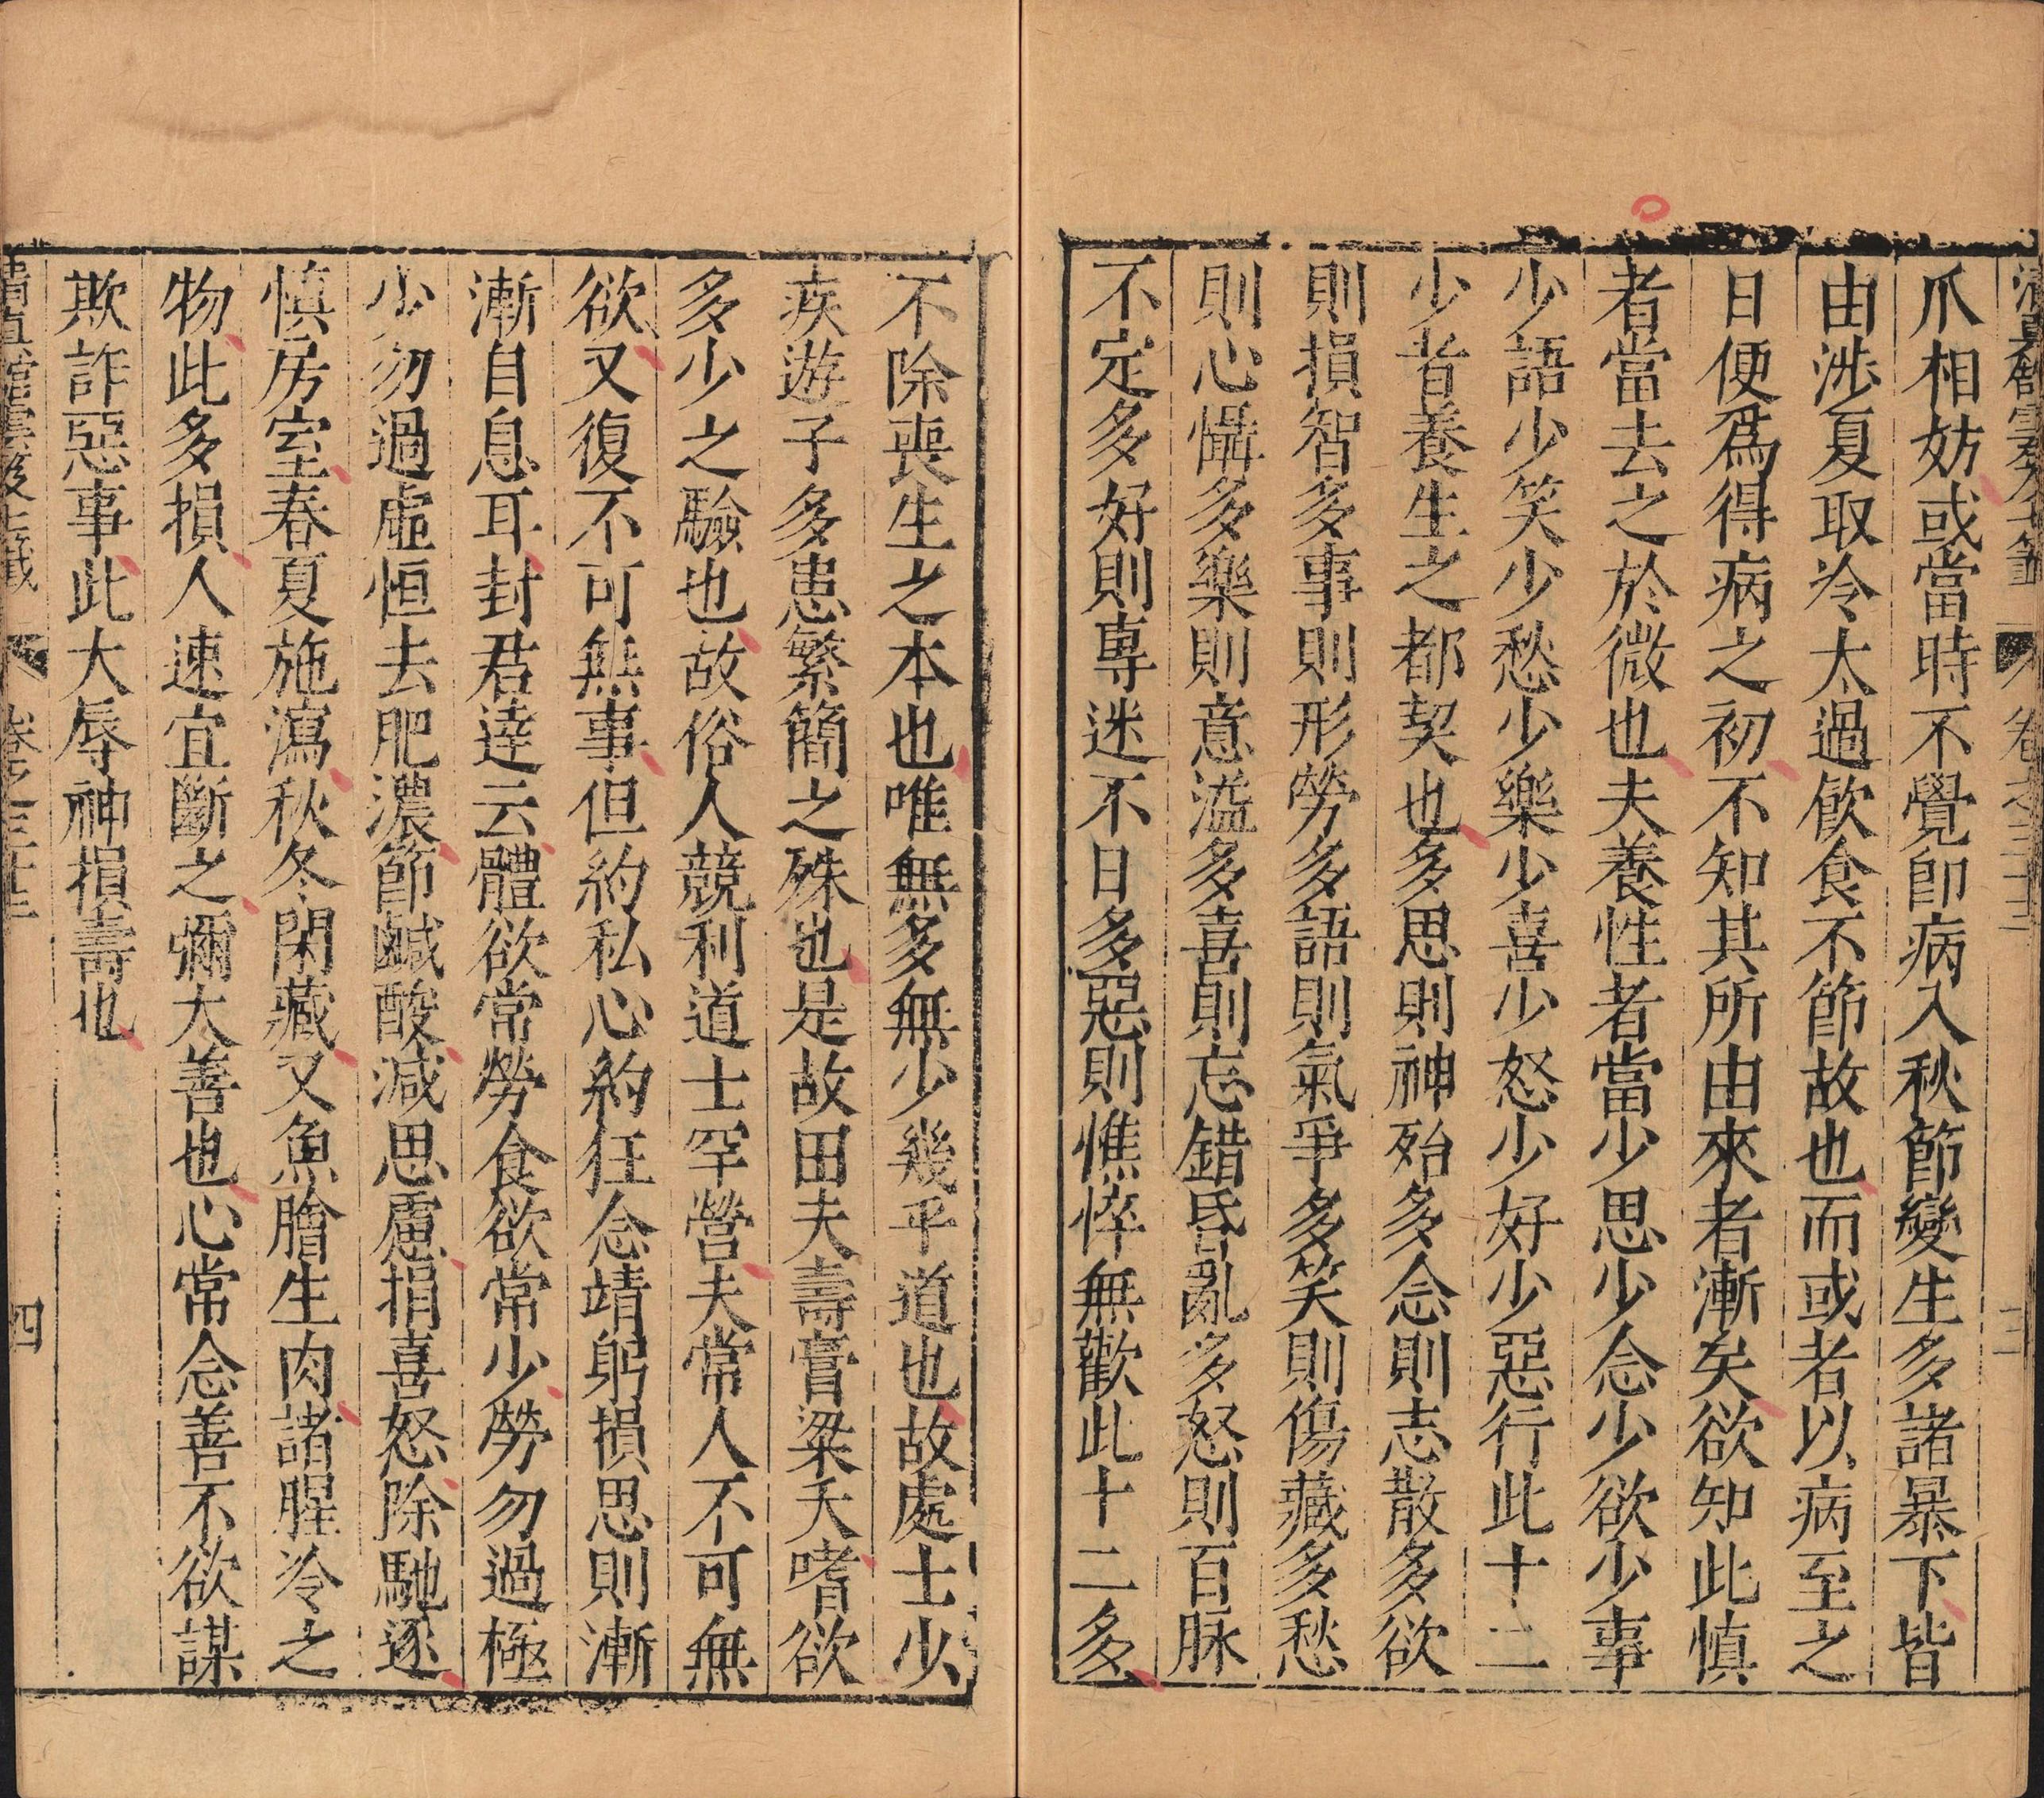 清真館雲笈七籤 卷之三十三 三
爪相妨或當時不覺卽病入秋節變生多諸暴下皆
由涉夏取冷太過飲食不節故也而或者以病至之
日便爲得病之初不知其所由來者漸矣欲知此慎
者當去之於微也夫養性者當少思少念少欲少事
少語少笑少愁少樂少喜少怒少好少惡行此十二
少者養生之都契也多思則神殆多念則志散多欲
則損智多事則形勞多語則氣爭多笑則傷藏多愁
則心懾多樂則意溢多喜則忘錯昏亂多怒則百脉
不定多好則專迷不日多惡則憔悴無歡此十二多
不除喪生之本也唯無多無少幾乎道也故處士少
疾遊子多患繁簡之殊也是故田夫壽膏粱夭嗜欲
多少之驗也故俗人競利道士罕營夫常人不可無
欲又復不可無事但約私心約狂念靖躬損思則漸
漸自息耳封君達云體欲常勞食欲常少勞勿過極
少勿過虛恒去肥濃節鹹酸減思慮捐喜怒除馳逐
慎房室春夏施瀉秋冬閑藏又魚膾生肉諸腥冷之
物此多損人速宜斷之彌大善也心常念善不欲謀
欺詐惡事此大辱神損壽也
清真館雲笈七籤 卷之三十三 四